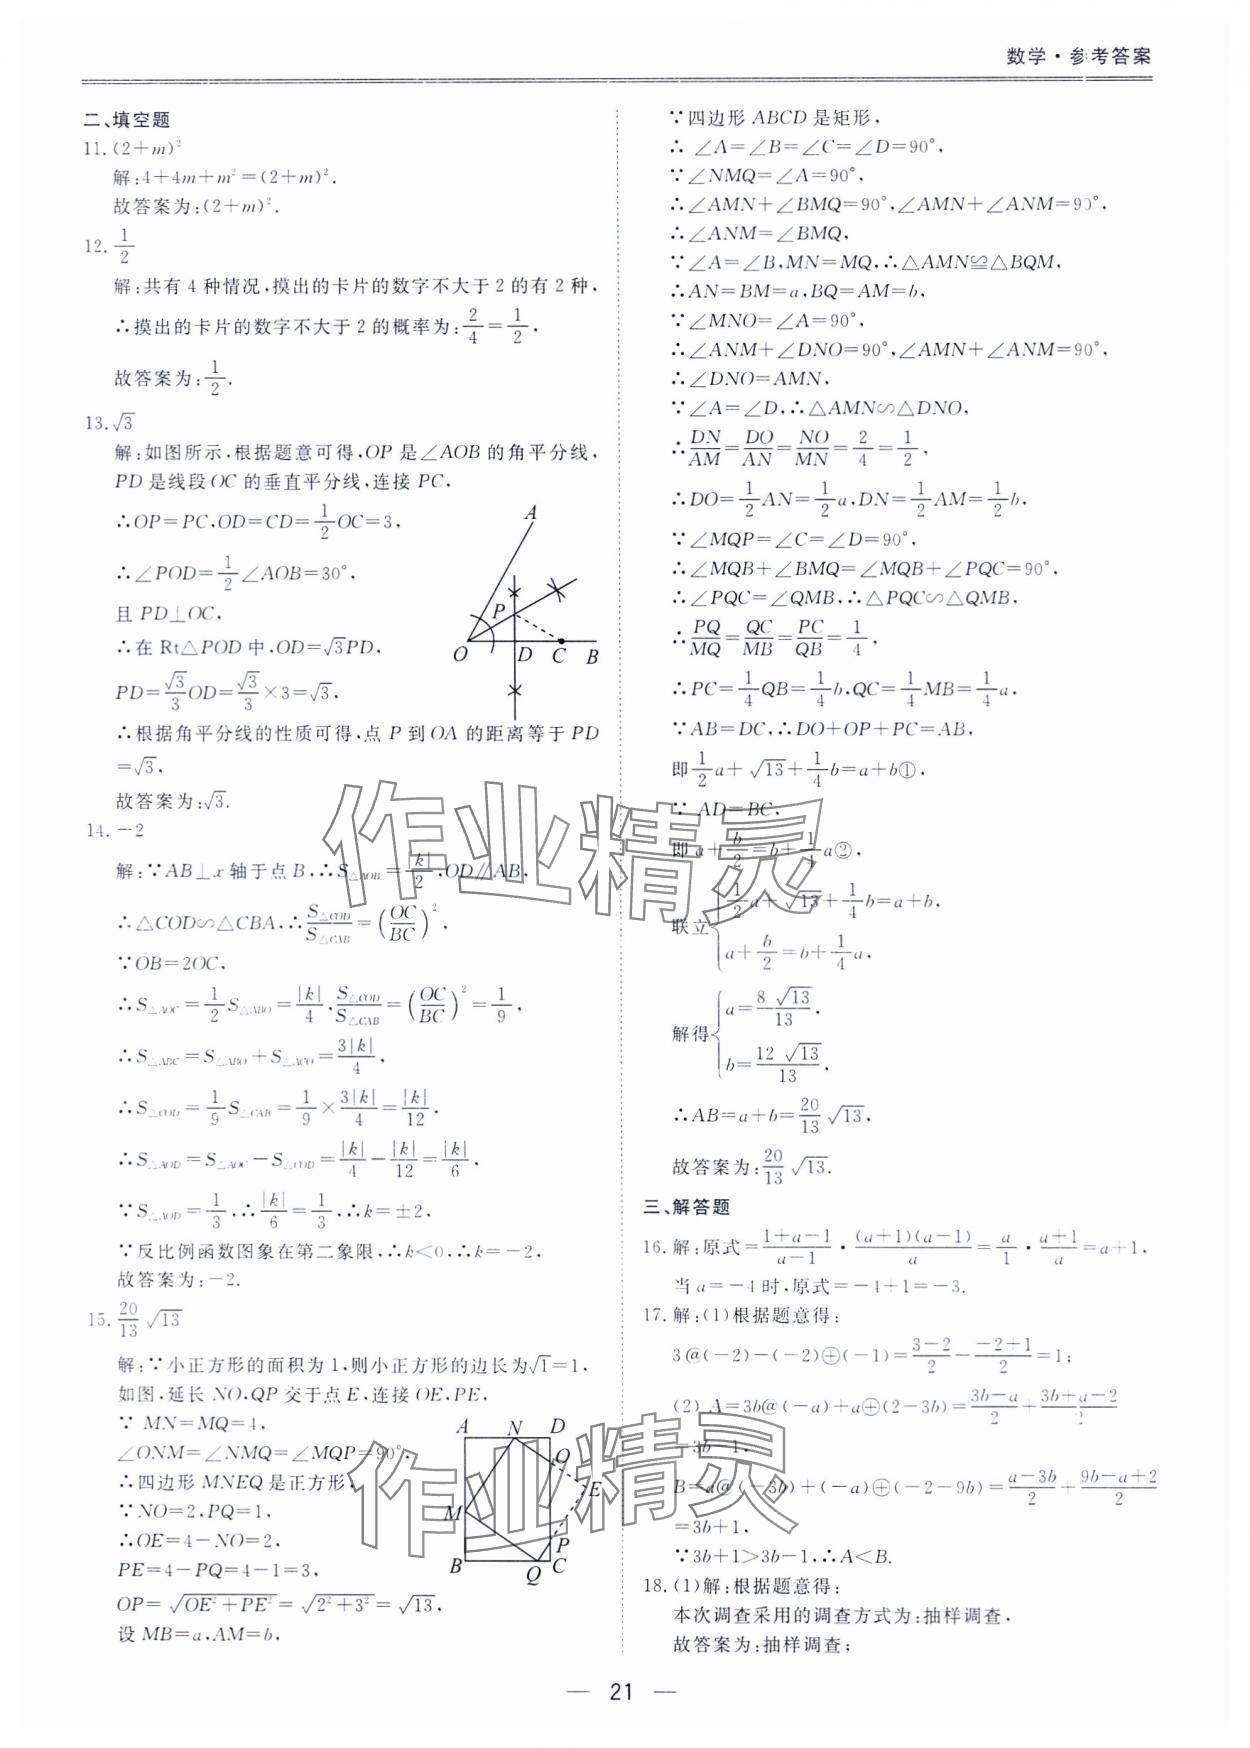 数学·参考答案
二、填空题
11.(2+m)²
解:4+4m+m²=(2+m)².
故答案为:(2+m)².
12. 1/2
解:共有4种情况,摸出的卡片的数字不大于2的有2种,
∴摸出的卡片的数字不大于2的概率为:2/4=1/2,
故答案为:1/2.
13.√3
解:如图所示,根据题意可得,OP是∠AOB的角平分线,
PD是线段OC的垂直平分线,连接PC,
∴OP=PC,OD=CD=1/2OC=3,
∴∠POD=1/2∠AOB=30°,
且PD⊥OC,
∴在Rt△POD中,OD=√3PD,
PD=√3/3OD=√3/3×3=√3,
∴根据角平分线的性质可得,点P到OA的距离等于PD
=√3,
故答案为:√3.
A
P
O D C B
14.-2
解:∵AB⊥x轴于点B,∴S△AOB=|k|/2,OD∥AB,
∴△COD∽△CBA,∴S△COD/S△CAB=(OC/BC)²,
∵OB=2OC,
∴S△AOC=1/2S△ABO=|k|/4,S△COD/S△CAB=(OC/BC)²=1/9,
∴S△ABC=S△ABO+S△ACO=3|k|/4,
∴S△COD=1/9S△CAB=1/9×3|k|/4=|k|/12,
∴S△AOD=S△AOC-S△COD=|k|/4-|k|/12=|k|/6,
∵S△AOD=1/3,∴|k|/6=1/3,∴k=±2,
∵反比例函数图象在第二象限,∴k<0,∴k=-2,
故答案为:-2.
15. 20/13√13
解:∵小正方形的面积为1,则小正方形的边长为√1=1,
如图,延长NO,QP交于点E,连接OE,PE,
∵MN=MQ=4,
∠ONM=∠NMQ=∠MQP=90°,
∴四边形MNEQ是正方形,
∵NO=2,PQ=1,
∴OE=4-NO=2,
PE=4-PQ=4-1=3,
OP=√(OE²+PE²)=√(2²+3²)=√13,
设MB=a,AM=b,
A N D
O
E
M
P
B Q C
∵四边形ABCD是矩形,
∴∠A=∠B=∠C=∠D=90°,
∵∠NMQ=∠A=90°,
∴∠AMN+∠BMQ=90°,∠AMN+∠ANM=90°,
∴∠ANM=∠BMQ,
∵∠A=∠B,MN=MQ,∴△AMN≌△BQM,
∴AN=BM=a,BQ=AM=b,
∵∠MNO=∠A=90°,
∴∠ANM+∠DNO=90°,∠AMN+∠ANM=90°,
∴∠DNO=AMN,
∵∠A=∠D,∴△AMN∽△DNO,
∴DN/AM=DO/AN=NO/MN=2/4=1/2,
∴DO=1/2AN=1/2a,DN=1/2AM=1/2b,
∵∠MQP=∠C=∠D=90°,
∴∠MQB+∠BMQ=∠MQB+∠PQC=90°,
∴∠PQC=∠QMB,∴△PQC∽△QMB,
∴PQ/MQ=QC/MB=PC/QB=1/4,
∴PC=1/4QB=1/4b,QC=1/4MB=1/4a,
∵AB=DC,∴DO+OP+PC=AB,
即1/2a+√13+1/4b=a+b①,
∵AD=BC,
即a+b/2=b+1/4a②,
联立{1/2a+√13+1/4b=a+b,
a+b/2=b+1/4a,
解得{a=8√13/13,
b=12√13/13,
∴AB=a+b=20/13√13,
故答案为:20/13√13.
三、解答题
16.解:原式=(1+a-1)/(a-1)·(a+1)(a-1)/a=a/1·(a+1)/a=a+1,
当a=-4时,原式=-4+1=-3.
17.解:(1)根据题意得:
3@(-2)-(-2)⊕(-1)=(3-2)/2-(-2+1)/2=1;
(2)A=3b@(-a)+a⊕(2-3b)=(3b-a)/2+(3b+a-2)/2
=3b-1,
B=a@(-3b)+(-a)⊕(-2-9b)=(a-3b)/2+(9b-a+2)/2
=3b+1,
∵3b+1>3b-1,∴A<B.
18.(1)解:根据题意得:
本次调查采用的调查方式为:抽样调查,
故答案为:抽样调查;
作业精灵
作业精灵
— 21 —